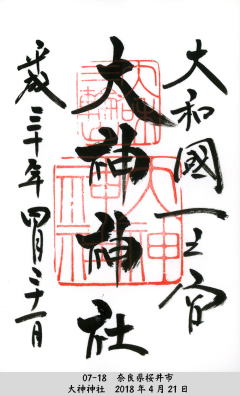 大和國一之宮
大神神社
平成三十年 四月二十一日
07-18 奈良県桜井市
大神神社 2018年4月21日